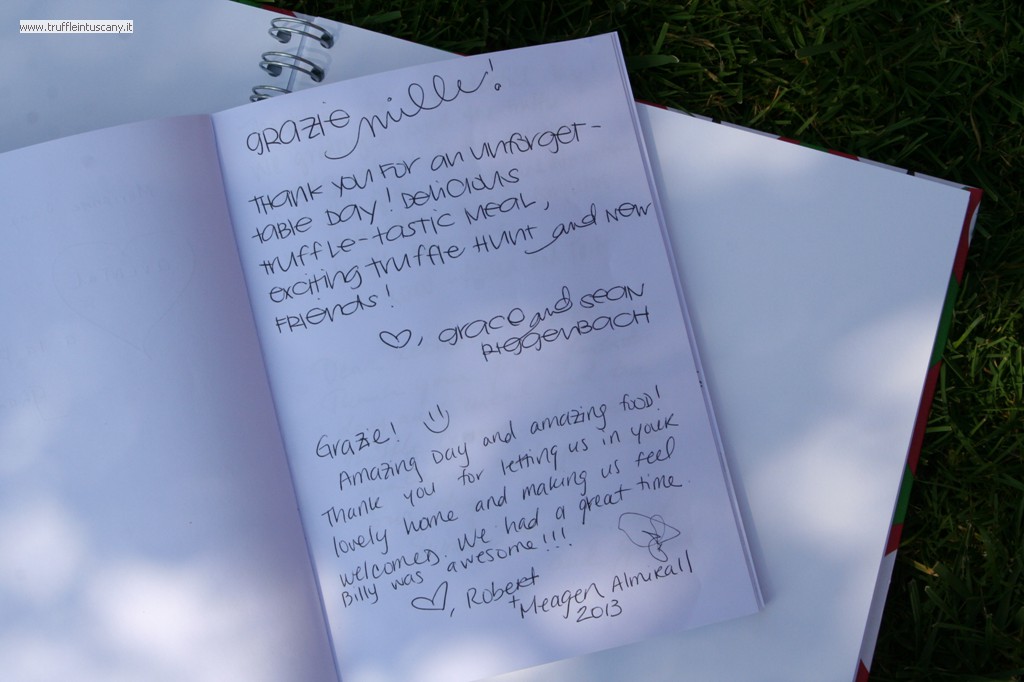 www.truffleintuscany.it
GRAZIE mille!
THANK YOU FOR an UNFORGET-
TABLE DAY! DELICIOUS
TRUFFLE-TASTIC MEAL,
EXCITING TRUFFLE HUNT and NEW
FRIENDS!
♡, GRACE and SEAN
RIGGENBACH
Grazie! :)
Amazing Day and amazing food!
Thank you for letting us in your
lovely home and making us feel
welcomed. We had a great time.
Billy was awesome!!!
♡, Robert
+ Meagen Almirall
2013